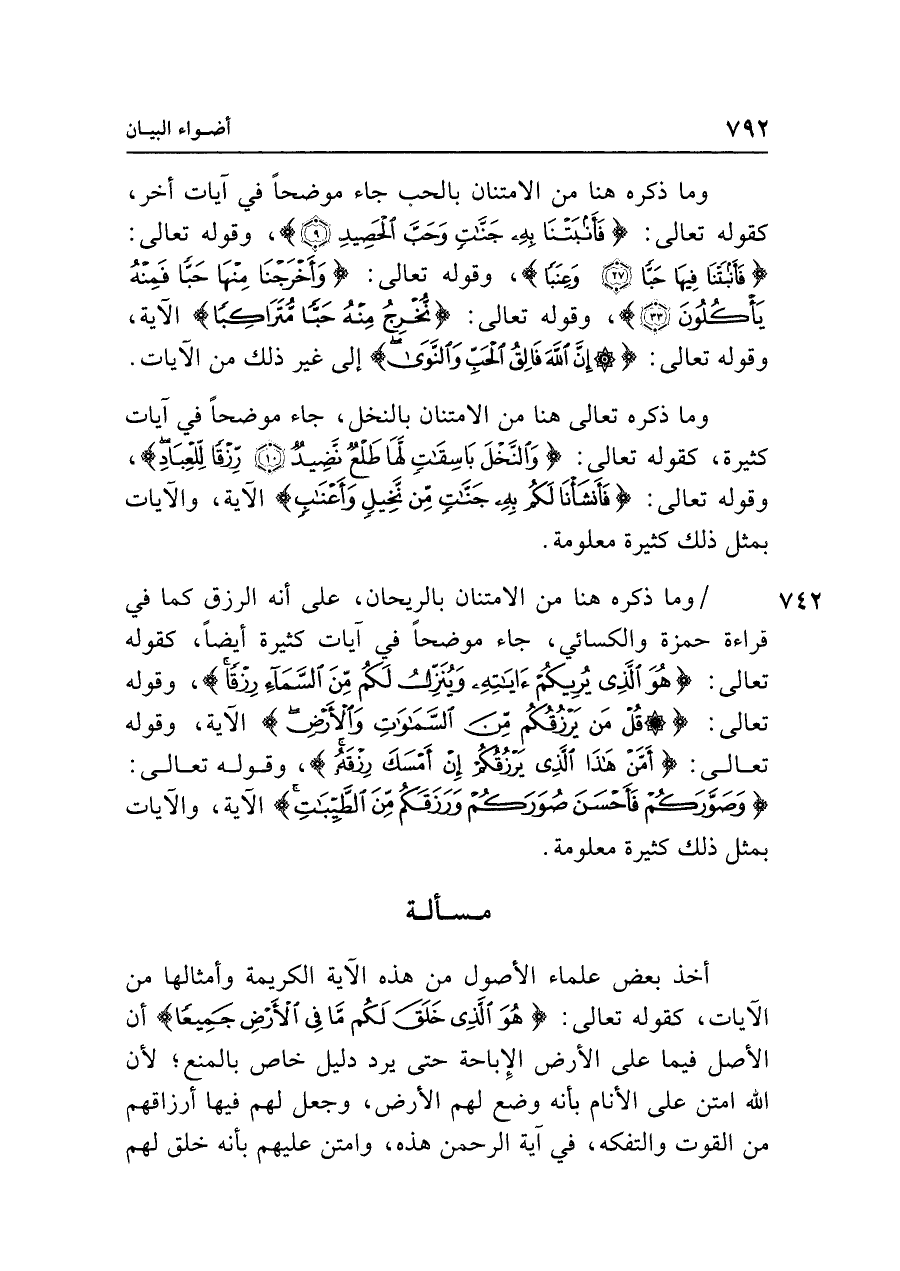 ٧٩٢ أضـواء البيـان
وما ذكره هنا من الامتنان بالحب جاء موضحاً في آيات أخر،
كقوله تعالى: ﴿ فَأَنۢبَتۡنَا بِهِۦ جَنَّٰتٖ وَحَبَّ ٱلۡحَصِيدِ ٩﴾، وقوله تعالى:
﴿ فَأَنۢبَتۡنَا فِيهَا حَبّٗا ٢٧ وَعِنَبٗا ﴾، وقوله تعالى: ﴿ وَأَخۡرَجۡنَا مِنۡهَا حَبّٗا فَمِنۡهُ
يَأۡكُلُونَ ٣٣﴾، وقوله تعالى: ﴿نُّخۡرِجُ مِنۡهُ حَبّٗا مُّتَرَاكِبٗا﴾ الآية،
وقوله تعالى: ﴿ ۞إِنَّ ٱللَّهَ فَالِقُ ٱلۡحَبِّ وَٱلنَّوَىٰۖ﴾ إلى غير ذلك من الآيات.
وما ذكره تعالى هنا من الامتنان بالنخل، جاء موضحاً في آيات
كثيرة، كقوله تعالى: ﴿ وَٱلنَّخۡلَ بَاسِقَٰتٖ لَّهَا طَلۡعٞ نَّضِيدٞ ١٠ رِّزۡقٗا لِّلۡعِبَادِۖ﴾،
وقوله تعالى: ﴿ فَأَنشَأۡنَا لَكُم بِهِۦ جَنَّٰتٖ مِّن نَّخِيلٖ وَأَعۡنَٰبٖ﴾ الآية، والآيات
بمثل ذلك كثيرة معلومة.
٧٤٢ /وما ذكره هنا من الامتنان بالريحان، على أنه الرزق كما في
قراءة حمزة والكسائي، جاء موضحاً في آيات كثيرة أيضاً، كقوله
تعالى: ﴿ هُوَ ٱلَّذِي يُرِيكُمۡ ءَايَٰتِهِۦ وَيُنَزِّلُ لَكُم مِّنَ ٱلسَّمَآءِ رِزۡقٗاۚ﴾، وقوله
تعالى: ﴿ ۞قُلۡ مَن يَرۡزُقُكُم مِّنَ ٱلسَّمَٰوَٰتِ وَٱلۡأَرۡضِۖ ﴾ الآية، وقوله
تعـالـى: ﴿ أَمَّنۡ هَٰذَا ٱلَّذِي يَرۡزُقُكُمۡ إِنۡ أَمۡسَكَ رِزۡقَهُۥۚ ﴾، وقـولـه تعـالـى:
﴿ وَصَوَّرَكُمۡ فَأَحۡسَنَ صُوَرَكُمۡ وَرَزَقَكُم مِّنَ ٱلطَّيِّبَٰتِۚ﴾ الآية، والآيات
بمثل ذلك كثيرة معلومة.
مـسـألـة
أخذ بعض علماء الأصول من هذه الآية الكريمة وأمثالها من
الآيات، كقوله تعالى: ﴿ هُوَ ٱلَّذِي خَلَقَ لَكُم مَّا فِي ٱلۡأَرۡضِ جَمِيعٗا﴾ أن
الأصل فيما على الأرض الإباحة حتى يرد دليل خاص بالمنع؛ لأن
الله امتن على الأنام بأنه وضع لهم الأرض، وجعل لهم فيها أرزاقهم
من القوت والتفكه، في آية الرحمن هذه، وامتن عليهم بأنه خلق لهم